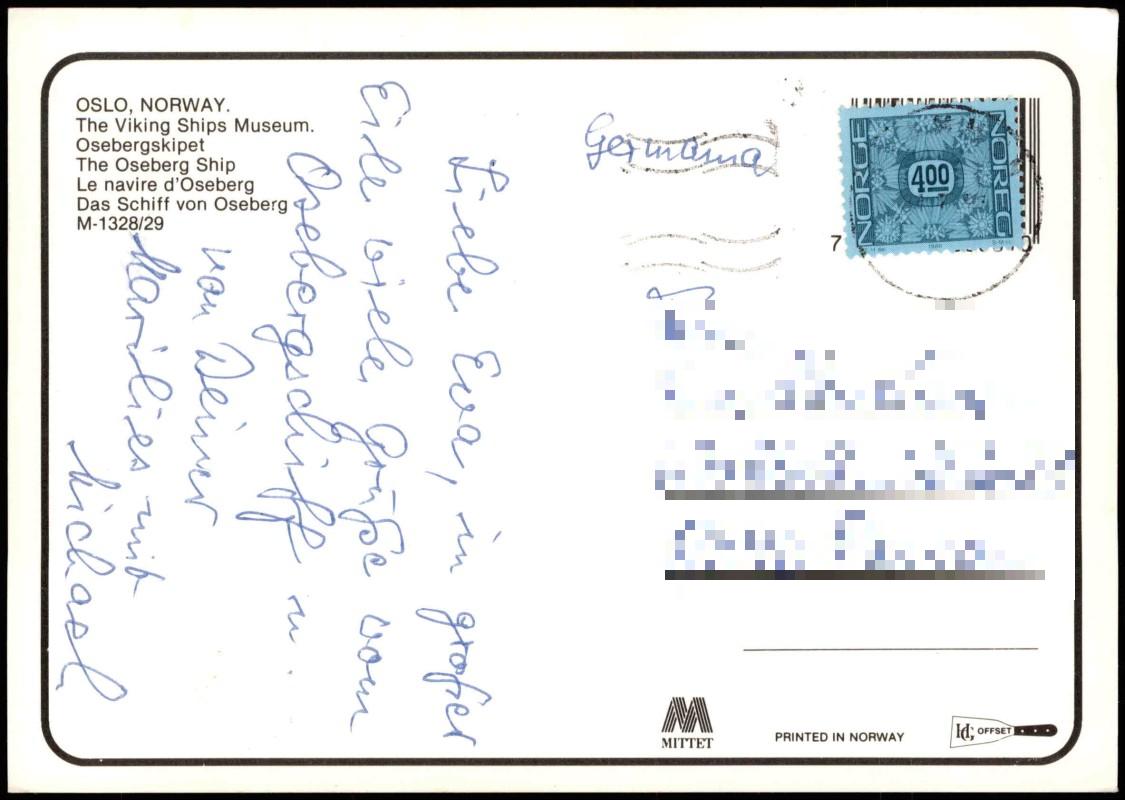 OSLO, NORWAY.
The Viking Ships Museum.
Osebergskipet
The Oseberg Ship
Le navire d'Oseberg
Das Schiff von Oseberg
M-1328/29
Liebe Eva, in großer
Eile viele Grüße vom
Osebergschiff u.
von Deiner
Marilies mit
Michael
Germania
NORGE
400
NOREG
1986
7
MITTET
PRINTED IN NORWAY
OFFSET